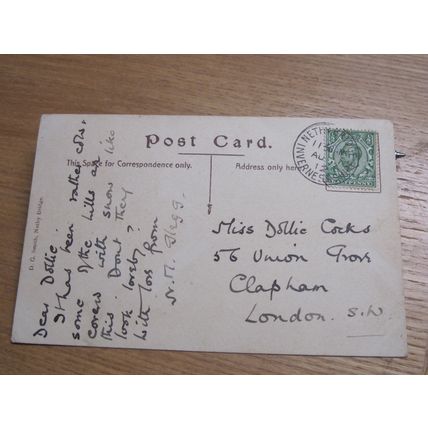 Post Card.
This Space for Correspondence only.
Address only here
Dear Dollie.
It has been rather cold.
some of the hills are
coverd with snow like
this. Dont they
look lovely?
with love from
Miss Dollie Cocks
56 Union Grove
Clapham
London. S.W
INVERNESS
D. G. Smith, Nethy Bridge.